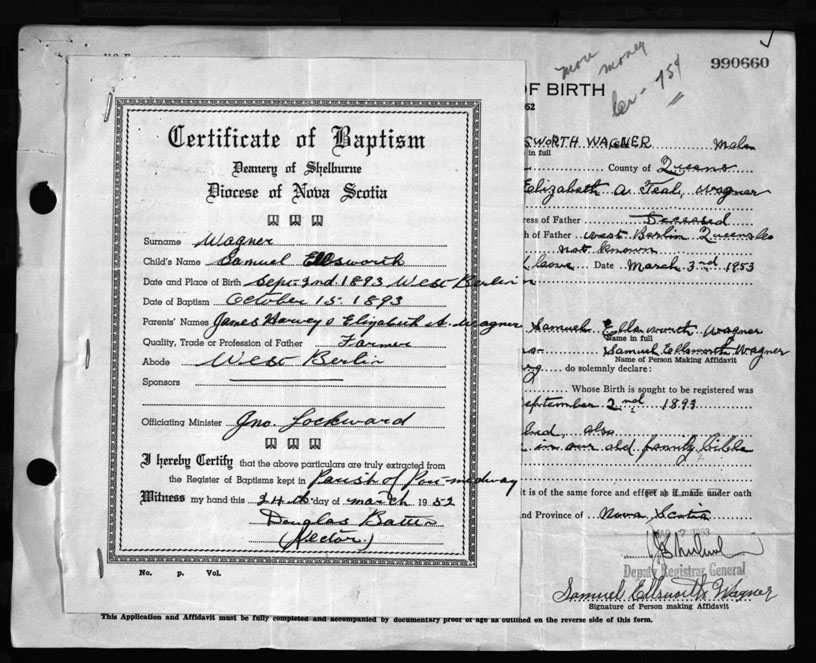 more money
for - 75¢
990660
OF BIRTH
Certificate of Baptism
Deanery of Shelburne
Diocese of Nova Scotia
Surname Wagner
Child's Name Samuel Ellsworth
Date and Place of Birth Sept. 2nd. 1893 West Berlin
Date of Baptism October 15. 1893
Parents' Names James Harvey & Elizabeth A. Wagner
Quality, Trade or Profession of Father Farmer
Abode West Berlin
Sponsors
Officiating Minister Jno. Lockward
I hereby Certify that the above particulars are truly extracted from
the Register of Baptisms kept in Parish of Port Medway
Witness my hand this 24th day of march 1952
Douglas
(Rector.)
No. p. Vol.
SWORTH WAGNER Male
in full
County of Queens
Elizabeth A. Teal, Wagner
ress of Father Deceased
h of Father West Berlin Queens Co
not known
Date March 3rd 1953
Samuel Ellsworth Wagner
Name in full
Samuel Ellsworth Wagner
Name of Person Making Affidavit
do solemnly declare:
Whose Birth is sought to be registered was
eptember 2nd 1893
also
in our old family bible
it is of the same force and effect as if made under oath
nd Province of Nova Scotia
1953
Deputy Registrar General
Samuel Ellsworth Wagner
Signature of Person making Affidavit
This Application and Affidavit must be fully completed and accompanied by documentary proof of age as outlined on the reverse side of this form.